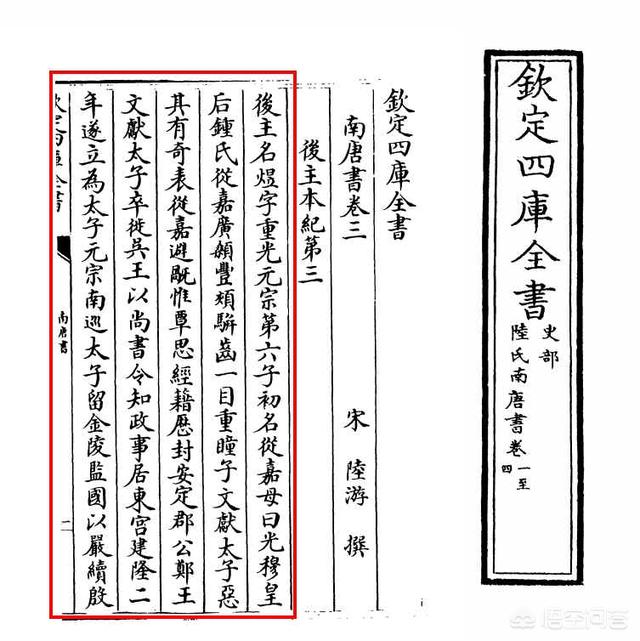 欽定四庫全書
史部
陸氏南唐書卷一至四
欽定四庫全書
南唐書卷三
宋 陸游 撰
後主本紀第三
後主名煜字重光元宗第六子初名從嘉母曰光穆皇
后鍾氏從嘉廣顙豐頰駢齒一目重瞳子文獻太子惡
其有奇表從嘉避禍惟覃思經籍歷封安定郡公鄭王
文獻太子卒徙吳王以尚書令知政事居東宮建隆二
年遂立為太子元宗南巡太子留金陵監國以嚴續殷
欽定四庫全書
南唐書
二
悟空问答